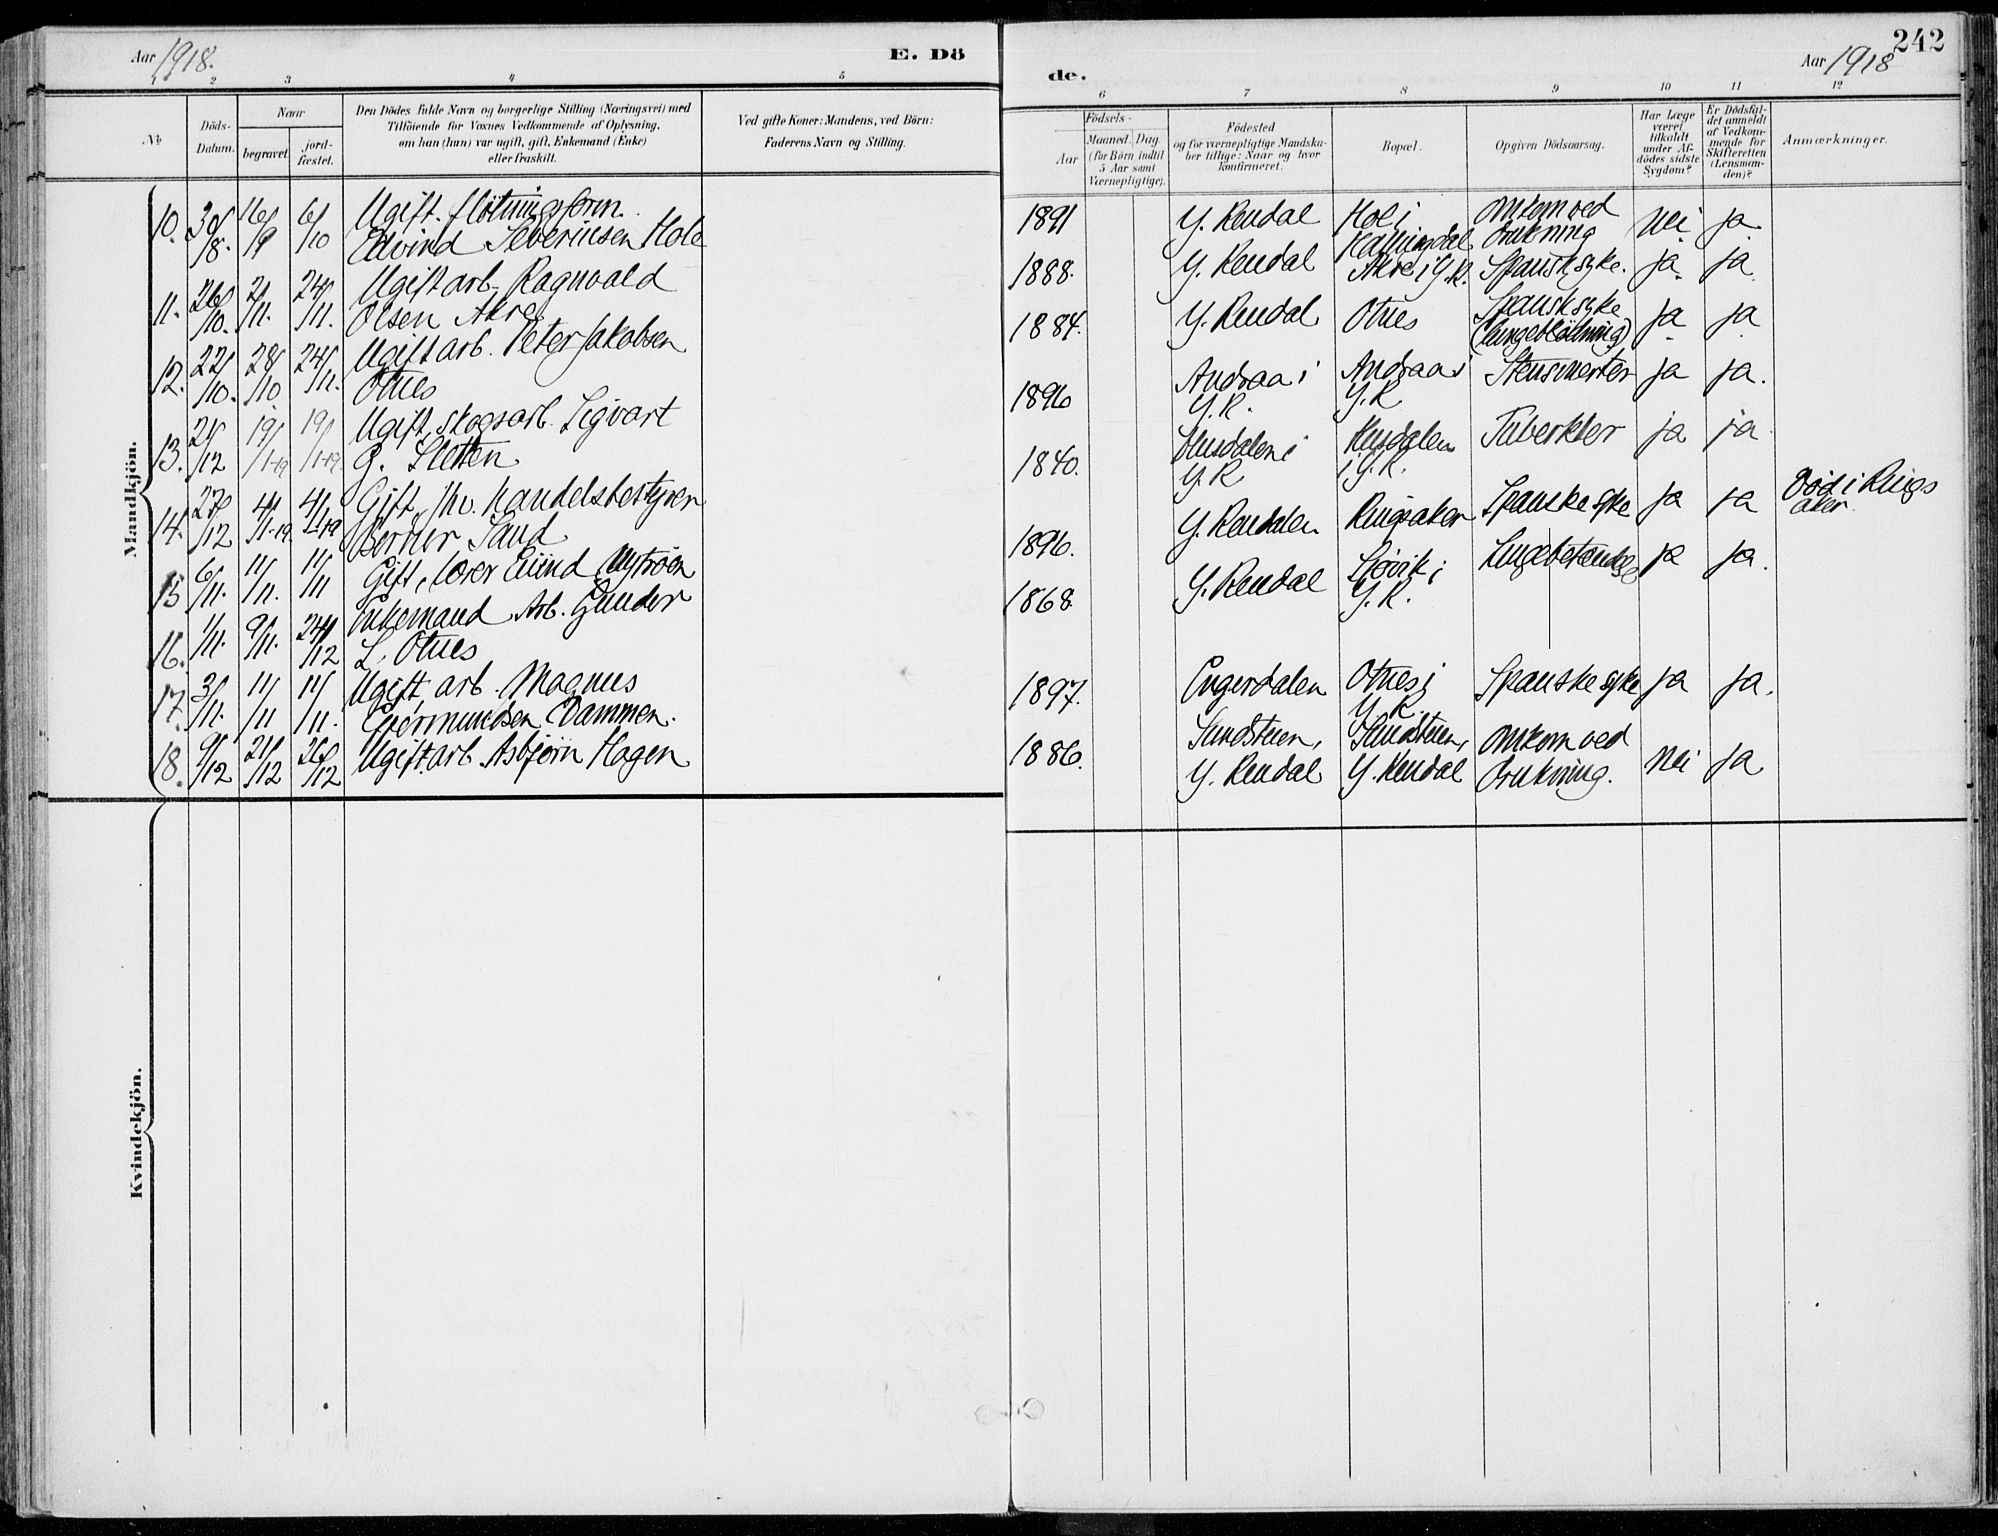 Aar 1918.
E. Dö
1 2 3 4 5
No
Döds-Datum.
Naar
begravet.
jord-fæstet.
Den Dödes fulde Navn og borgerlige Stilling (Næringsvei) med
Tilföiende for Voxnes Vedkommende af Oplysning,
om han (hun) var ugift, gift, Enkemand (Enke)
eller fraskilt.
Ved gifte Koner: Mandens, ved Börn:
Faderens Navn og Stilling.
Mandkjön.
10. 30/8. 16/9 6/10 Ugift. fløtningsform.
Edvind Severinsen Hole
11. 26/10. 2/11. 24/11. Ugift arb. Ragnvald
Olsen Akre
12. 22/10. 28/10 24/11. Ugift arb. Peter Jakobsen
Otnes
13. 21/12 19/1-19 19/1-19. Ugift, skogsarb. Sigvart
G. Sletten
14. 27/12 4/1-19. 4/1-19 Gift, fhv. handelsbestyrer
Berner Sand
15 6/11. 11/11. 11/11 Gift, lærer Eivind Nytrøen
16. 1/11. 9/11. 24/12 Enkemand Arb. Gunder
L. Otnes
17. 3/11. 11/11 11/11. Ugift, arb. Magnus
Evermundsen Dammen.
18. 9/12 21/12 26/12 Ugift arb. Asbjørn Hagen
Kvindekjön.
242
de.
Aar 1918
6 7 8 9 10 11 12
Födsels-
Aar
Maaned. Dag.
(for Börn indtil
5 Aar samt
Værnepligtige).
Födested
og for værnepligtige Mandska-
ber tillige: Naar og hvor
konfirmeret.
Bopæl.
Opgiven Dödsaarsag.
Har Læge
været
tilkaldt
under Af-
dödes sidste
Sygdom?
Er Dödsfal-
det anmeldt
af Vedkom-
mende for
Skifteretten
(Lensman-
den)?
Anmærkninger.
1891 Y. Rendal Hol i
Hallingdal omkom ved
drukning nei ja
1888. Y. Rendal Akre i Y.R. Spansk syke. ja ja
1884. Y. Rendal Otnes Spansk syke
(lungeblødning) ja ja
1896 Andraa i
Y.R. Andraa i
Y.R ja ja.
1840. i
Y.R i Y.R. ja ja.
1896. Y. Rendalen Ringsaker Spanske syke ja ja Død i Rings
aker.
1868. Y. Rendal Sjøvik i
Y.R. Lungebetændelse ja ja.
1897. Engerdalen Otnes i
Y.R. Spanske syke ja ja.
1886. Sundsteen,
Y. Rendal Sundsteen,
Y. Rendal omkom ved
drukning. nei ja